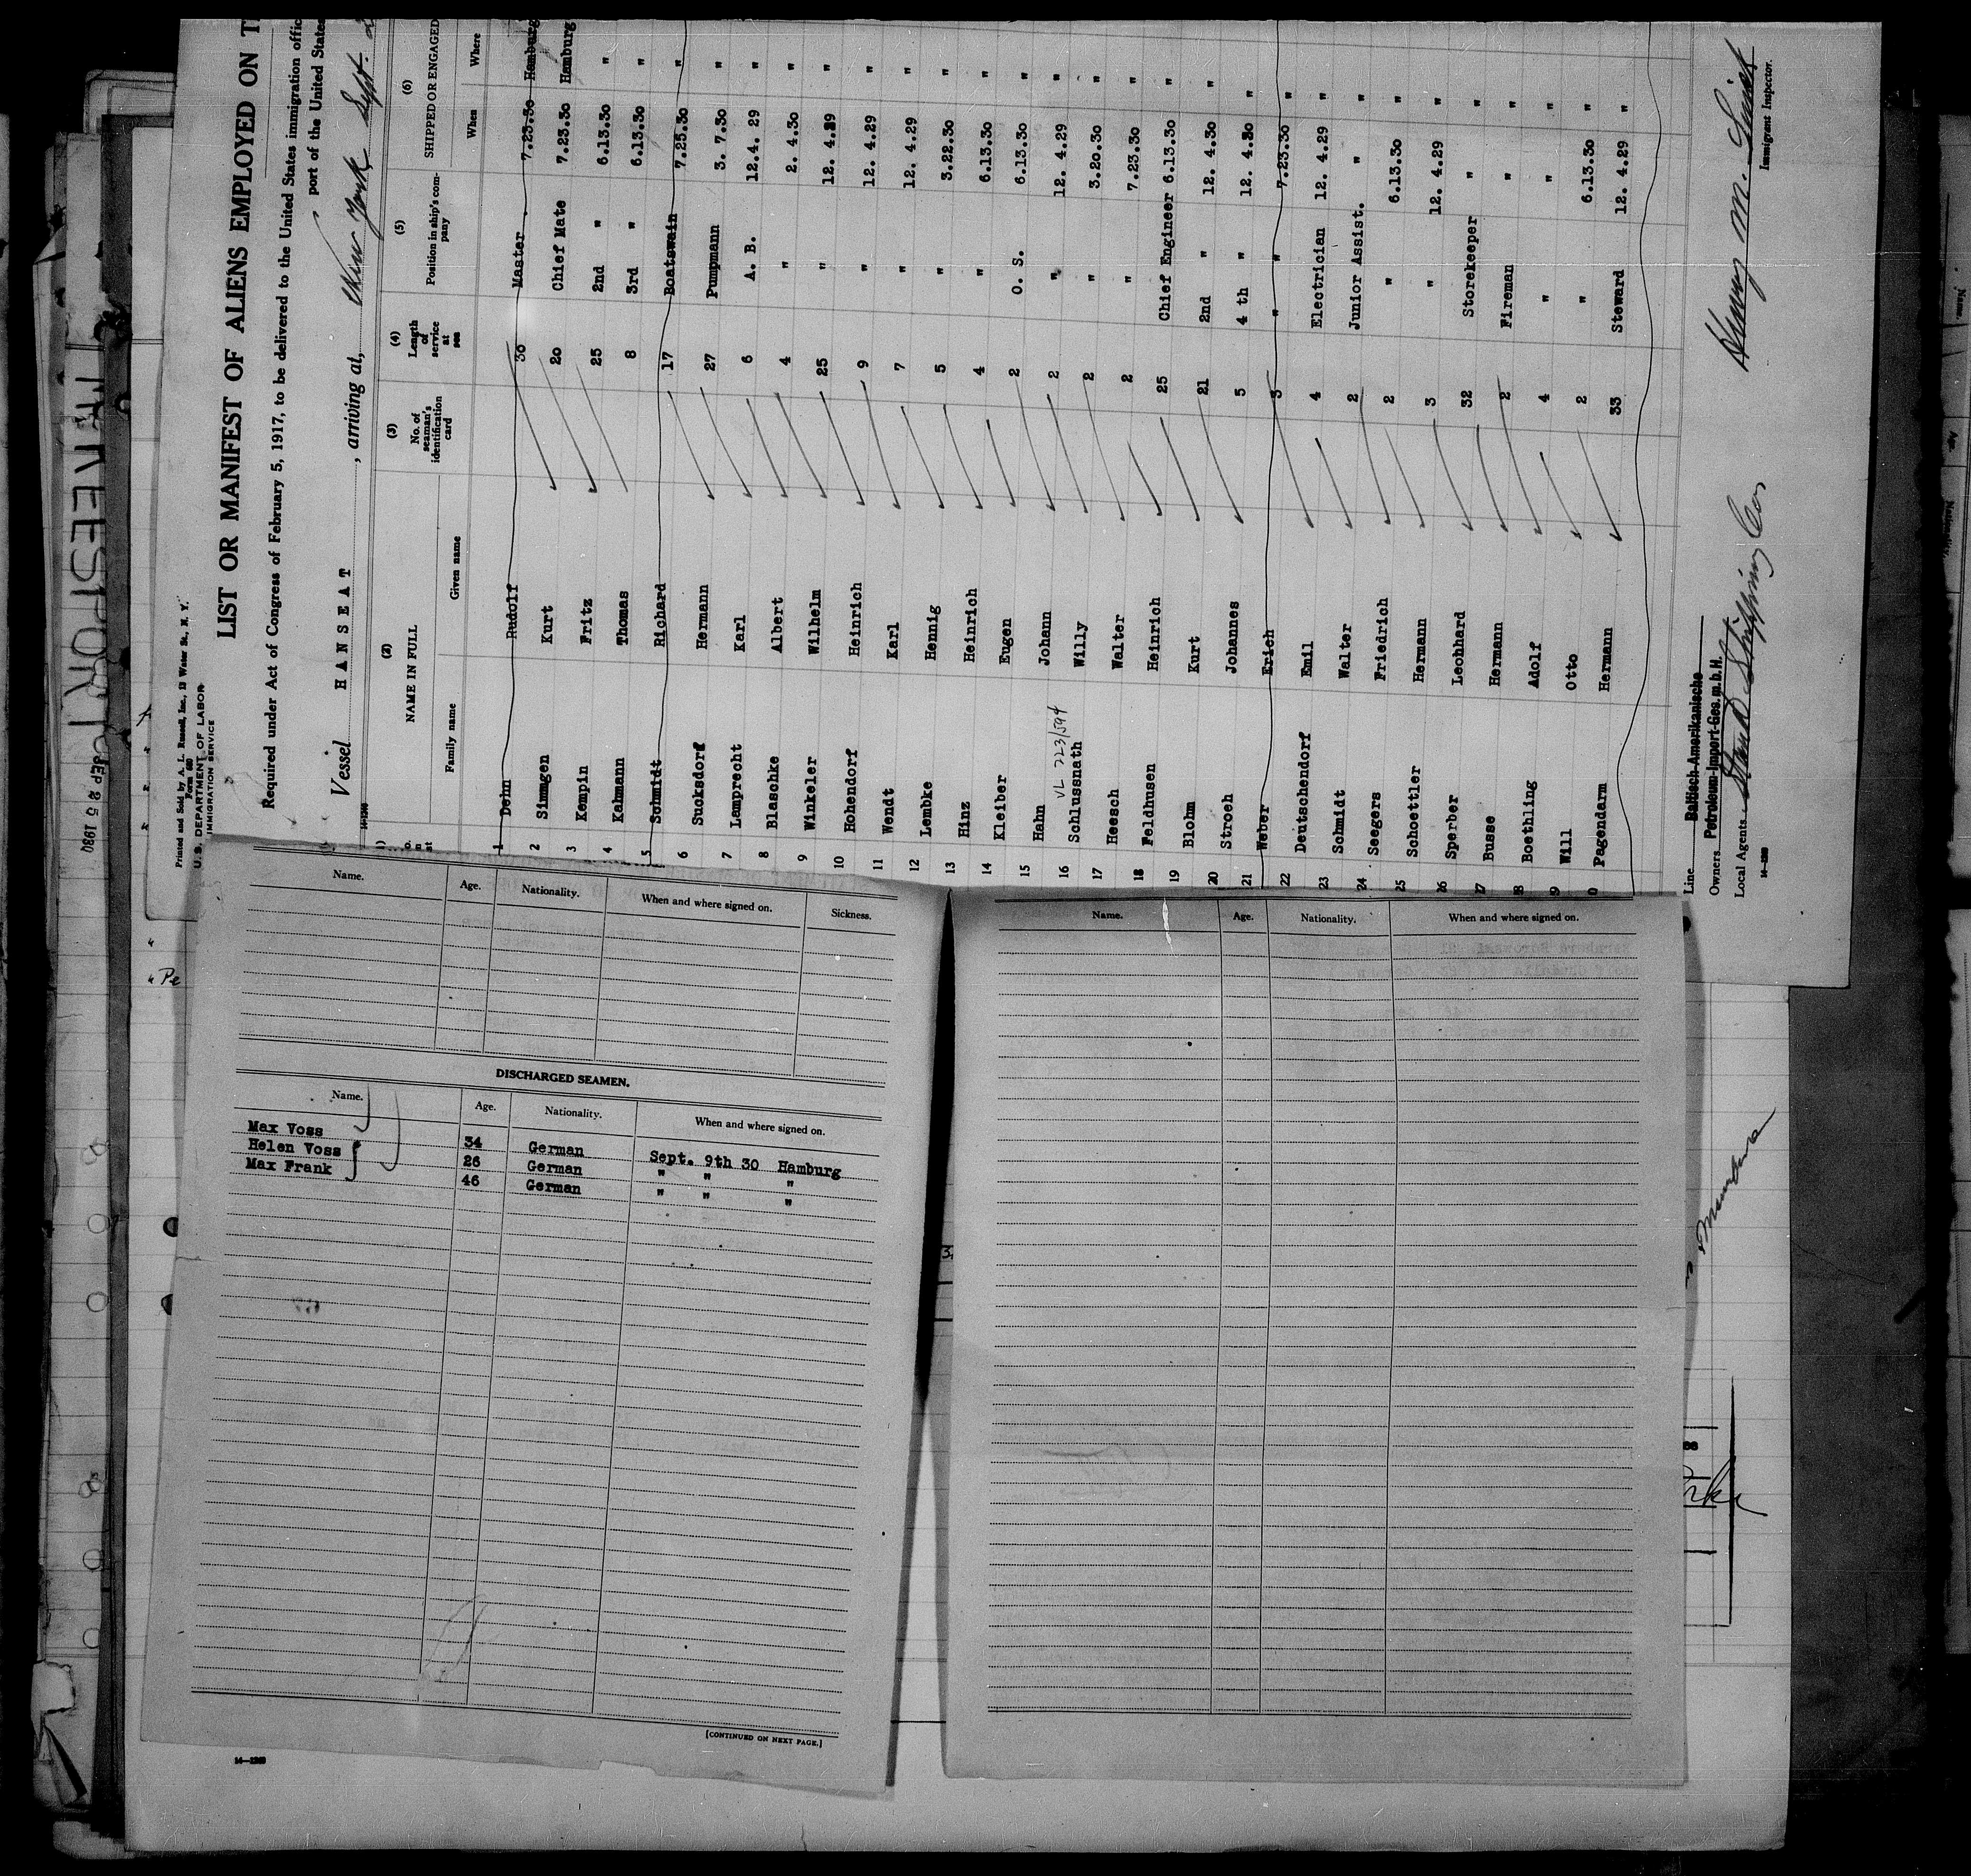 Printed and Sold by A. L. Russell, Inc., 13 Water St., N. Y.
Form 680
U. S. DEPARTMENT OF LABOR
IMMIGRATION SERVICE
LIST OR MANIFEST OF ALIENS EMPLOYED ON
Required under Act of Congress of February 5, 1917, to be delivered to the United States immigration
port of the United States
Vessel HANSEAT, arriving at, New York Sept.
(2) (3) (4) (5) (6)
NAME IN FULL No. of seaman's identification card Length of service at sea Position in ship's company SHIPPED OR ENGAGED
Family name Given name When Where
1 Dehn Rudolf 30 Master 7.23.30 Hamburg
2 Simmgen Kurt 20 Chief Mate 7.23.30 Hamburg
3 Kempin Fritz 25 2nd " 6.13.30 "
4 Kahmann Thomas 8 3rd " 6.13.30 "
5 Schmidt Richard 17 Boatswain 7.25.30 "
6 Sucksdorf Hermann 27 Pumpmann 3. 7.30 "
7 Lamprecht Karl 6 A. B. 12.4. 29 "
8 Blaschke Albert 4 " 2. 4.30 "
9 Winkeler Wilhelm 25 " 12. 4.29 "
10 Hohendorf Heinrich 9 " 12. 4.29 "
11 Wendt Karl 7 " 12. 4.29 "
12 Lembke Hennig 5 " 3.22.30 "
13 Hinz Heinrich 4 " 6.13.30 "
14 Kleiber Eugen 2 O. S. 6.13.30 "
15 Hahn Johann 2 " 12. 4.29 "
VL 223/594
16 Schlussnath Willy 2 " 3.20.30 "
17 Heesch Walter 2 " 7.23.30 "
18 Feldhusen Heinrich 25 Chief Engineer 6.13.30 "
19 Blohm Kurt 21 2nd " 12. 4.30 "
20 Stroeh Johannes 5 4 th " 12. 4.30 "
21 Weber Erich 3 " " 7.23.30 "
22 Deutschendorf Emil 4 Electrician 12. 4.29 "
23 Schmidt Walter 2 Junior Assist. " "
24 Seegers Friedrich 2 " 6.13.30 "
25 Schoettler Hermann 3 " 12. 4.29 "
26 Sperber Leonhard 32 Storekeeper " "
27 Busse Hermann 2 Fireman " "
28 Boethling Adolf 4 " " "
9 Will Otto 2 " 6.13.30 "
0 Pagendarm Hermann 33 Steward 12. 4.29 "
Line Baltisch-Amerikanische
Owners Petroleum-Import-Ges.m.b.H.
Local Agents Stand Shipping Co.
14-1240
Immigrant Inspector.
SEP 25 1930
Name. Age. Nationality. When and where signed on. Sickness.
DISCHARGED SEAMEN.
Name. Age. Nationality. When and where signed on.
Max Voss 34 German Sept. 9th 30 Hamburg
Helen Voss 26 German " " "
Max Frank 46 German " " "
[CONTINUED ON NEXT PAGE.]
Name. Age. Nationality. When and where signed on.